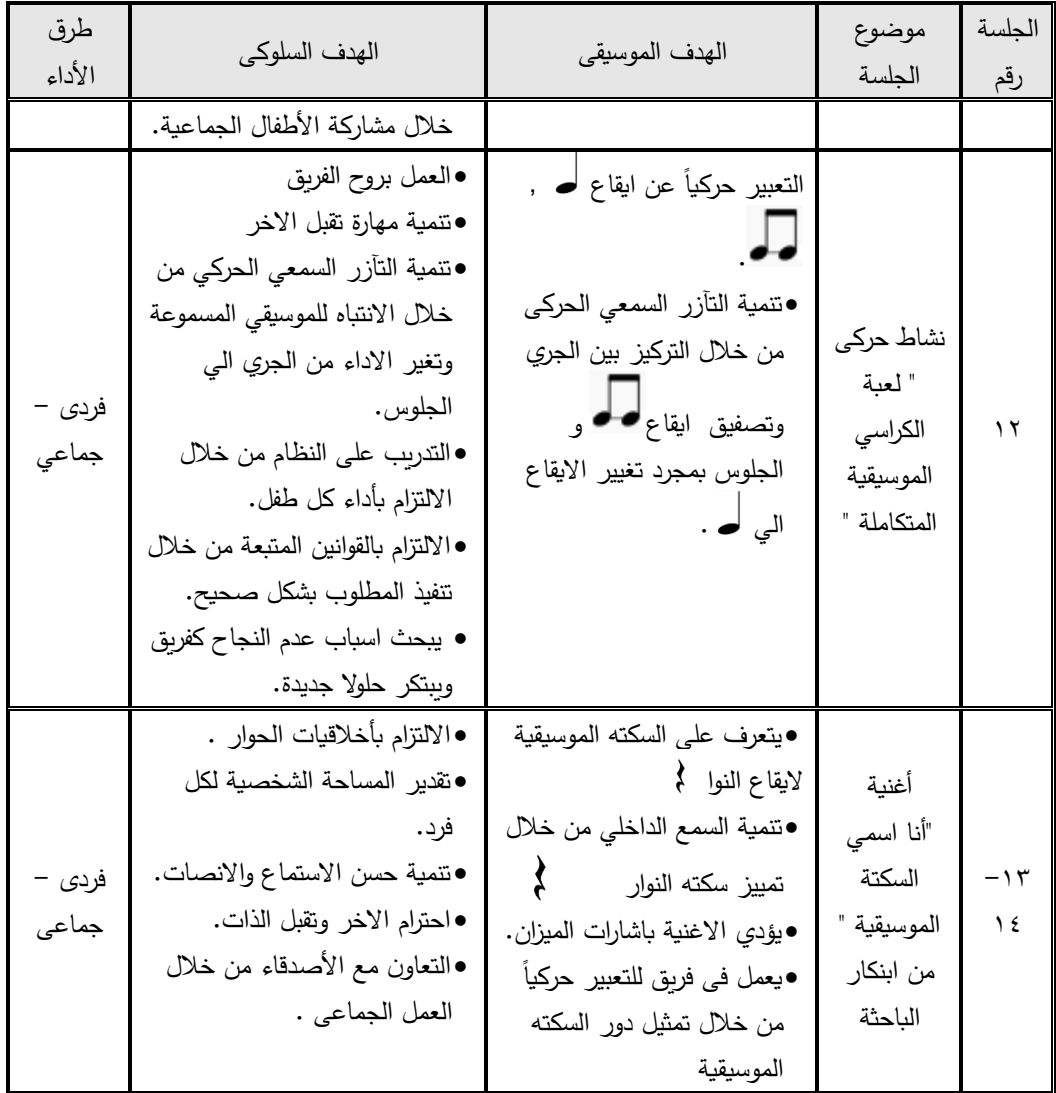 الجلسة رقم
موضوع الجلسة
الهدف الموسيقى
الهدف السلوكى
طرق الأداء
خلال مشاركة الأطفال الجماعية.
١٢
نشاط حركى
" لعبة
الكراسي
الموسيقية
المتكاملة "
التعبير حركياً عن ايقاع ♩ ,
♫ .
•تنمية التآزر السمعي الحركى
من خلال التركيز بين الجري
وتصفيق ايقاع ♫ و
الجلوس بمجرد تغيير الايقاع
الي ♩ .
•العمل بروح الفريق
•تنمية مهارة تقبل الاخر
•تنمية التآزر السمعي الحركي من
خلال الانتباه للموسيقي المسموعة
وتغير الاداء من الجري الي
الجلوس.
•التدريب على النظام من خلال
الالتزام بأداء كل طفل.
•الالتزام بالقوانين المتبعة من خلال
تنفيذ المطلوب بشكل صحيح.
• يبحث اسباب عدم النجاح كفريق
ويبتكر حلولا جديدة.
فردى –
جماعي
١٣–
١٤
أغنية
"أنا اسمي
السكتة
الموسيقية "
من ابنكار
الباحثة
•يتعرف على السكته الموسيقية
لايقاع النوا 𝄽
•تنمية السمع الداخلي من خلال
تمييز سكته النوار 𝄽
•يؤدي الاغنية باشارات الميزان.
•يعمل فى فريق للتعبير حركياً
من خلال تمثيل دور السكته
الموسيقية
•الالتزام بأخلاقيات الحوار .
•تقدير المساحة الشخصية لكل
فرد.
•تنمية حسن الاستماع والانصات.
•احترام الاخر وتقبل الذات.
•التعاون مع الأصدقاء من خلال
العمل الجماعى .
فردى –
جماعى